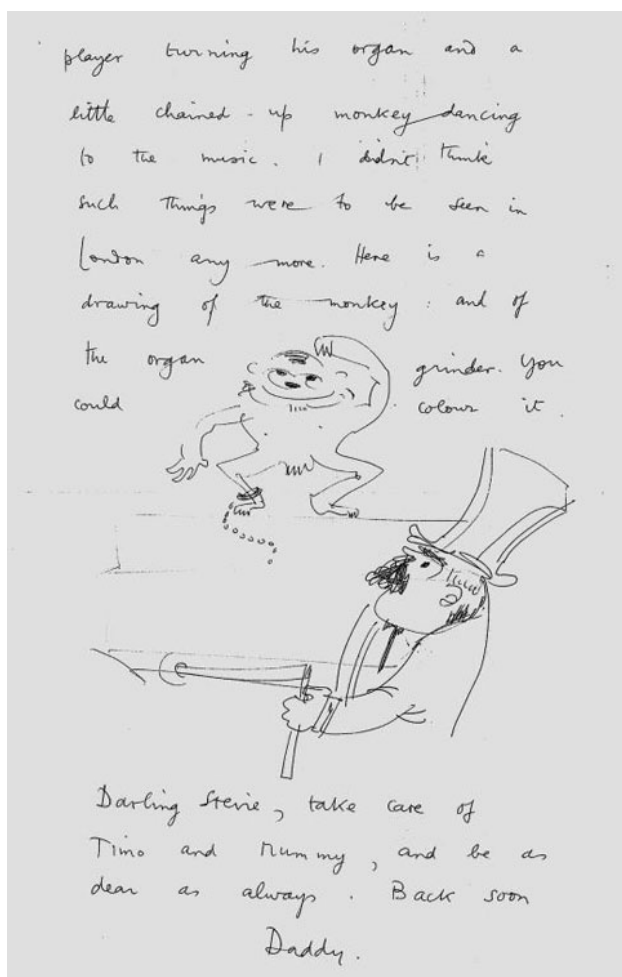 player turning his organ and a
little chained-up monkey dancing
to the music. I didn't think
such things were to be seen in
London any more. Here is a
drawing of the monkey: and of
the organ grinder. You
could colour it.
Darling Stevie, take care of
Timo and Mummy, and be as
dear as always. Back soon
Daddy.